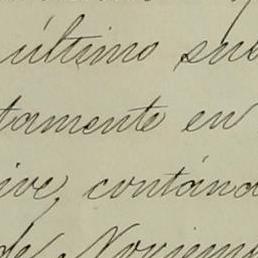 último sub
tamente en
ive, contánd
de Noviem